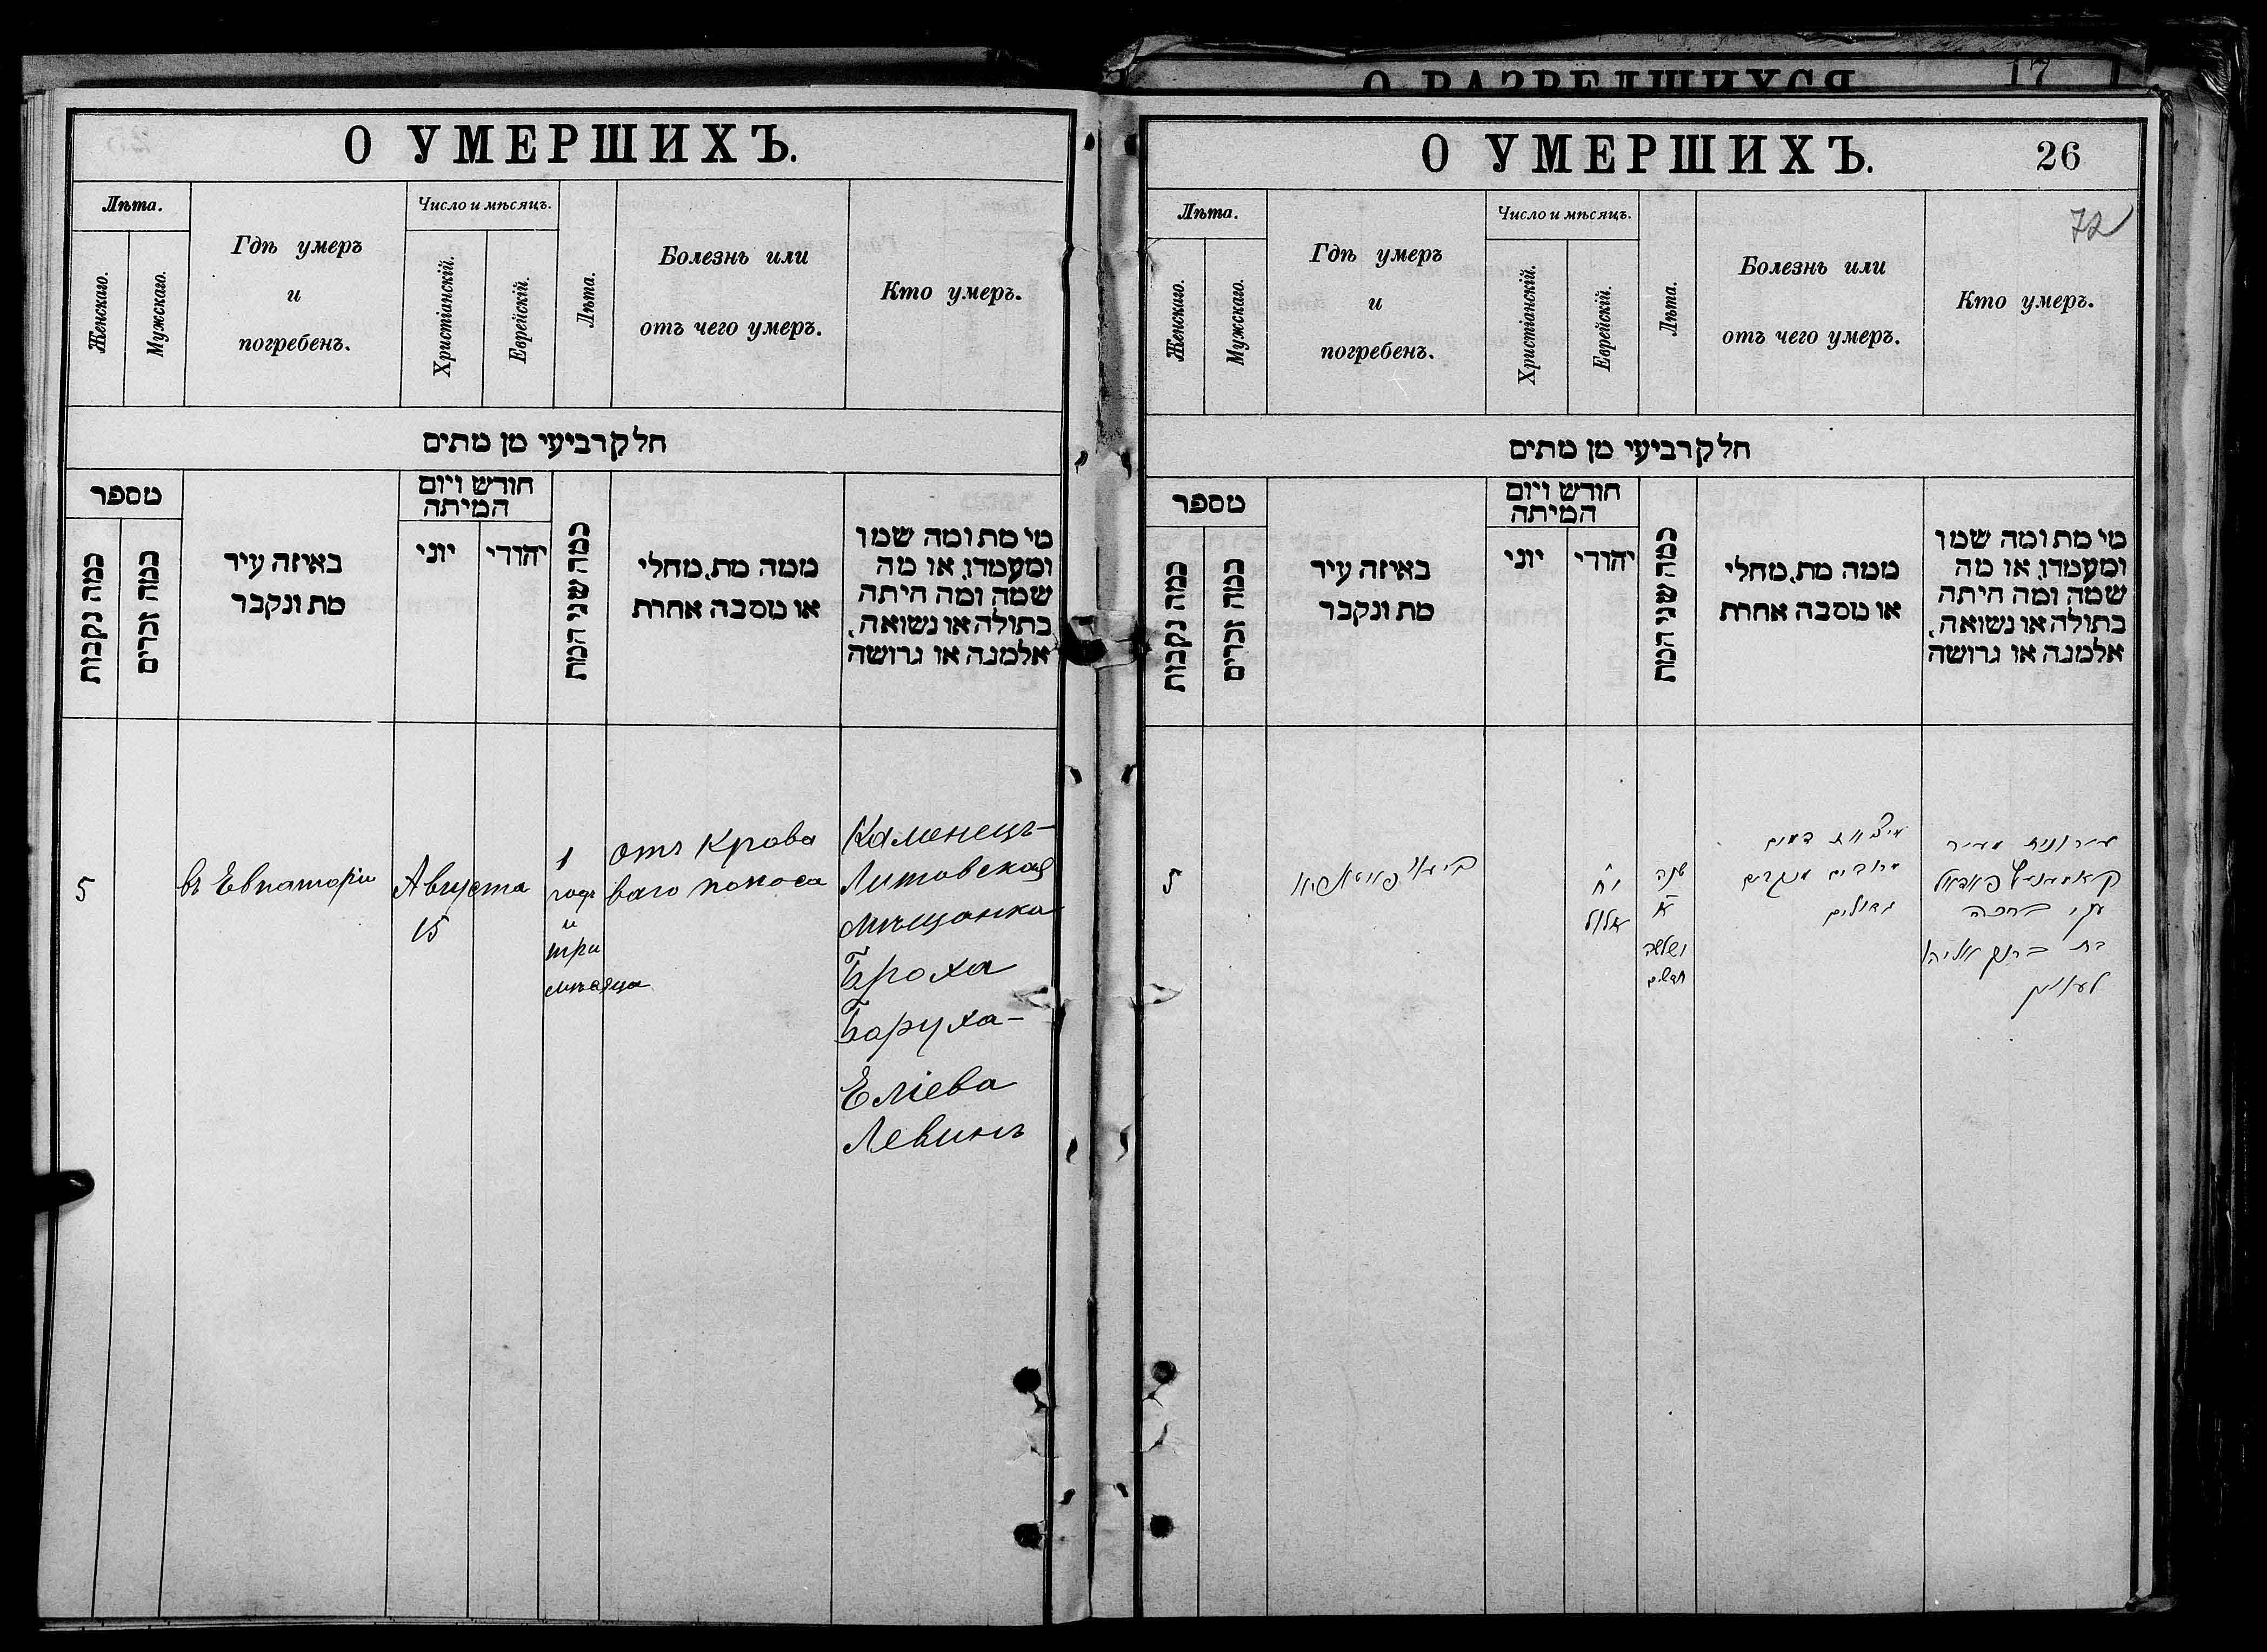 О УМЕРШИХЪ.
Лѣта.
Женскаго.
Мужскаго.
Гдѣ умеръ
и
погребенъ.
Число и мѣсяцъ.
Христіанскій.
Еврейскій.
Лѣта.
Болезнь или
отъ чего умеръ.
Кто умеръ.
חלק רביעי מן מתים
מספר
כמה נקבות
כמה זכרים
באיזה עיר
מת ונקבר
חודש ויום
המיתה
יוני
יהודי
כמה שני המת
ממה מת, מחלי
או מסבה אחרת
מי מת ומה שמו
ומעמדו, או מה
שמה ומה היתה
בתולה או נשואה,
אלמנה או גרושה
5
въ Евпаторіи
Августа
15
1
годъ
и
три
мѣсяца
отъ Крова
ваго поноса
Каменецъ-
Литовская
мѣщанка
Броха
Боруха-
Еліева
Левинъ
О РАЗВЕДШИХСЯ
17
О УМЕРШИХЪ.
26
72
Лѣта.
Женскаго.
Мужскаго.
Гдѣ умеръ
и
погребенъ.
Число и мѣсяцъ.
Христіанскій.
Еврейскій.
Лѣта.
Болезнь или
отъ чего умеръ.
Кто умеръ.
חלק רביעי מן מתים
מספר
כמה נקבות
כמה זכרים
באיזה עיר
מת ונקבר
חודש ויום
המיתה
יוני
יהודי
כמה שני המת
ממה מת, מחלי
או מסבה אחרת
מי מת ומה שמו
ומעמדו, או מה
שמה ומה היתה
בתולה או נשואה,
אלמנה או גרושה
5
יח
אלול
שנה
א
ושלשה
חדשים
דמים
עירונית מעיר
ברכה
בת ברוך אליהו
לעווין